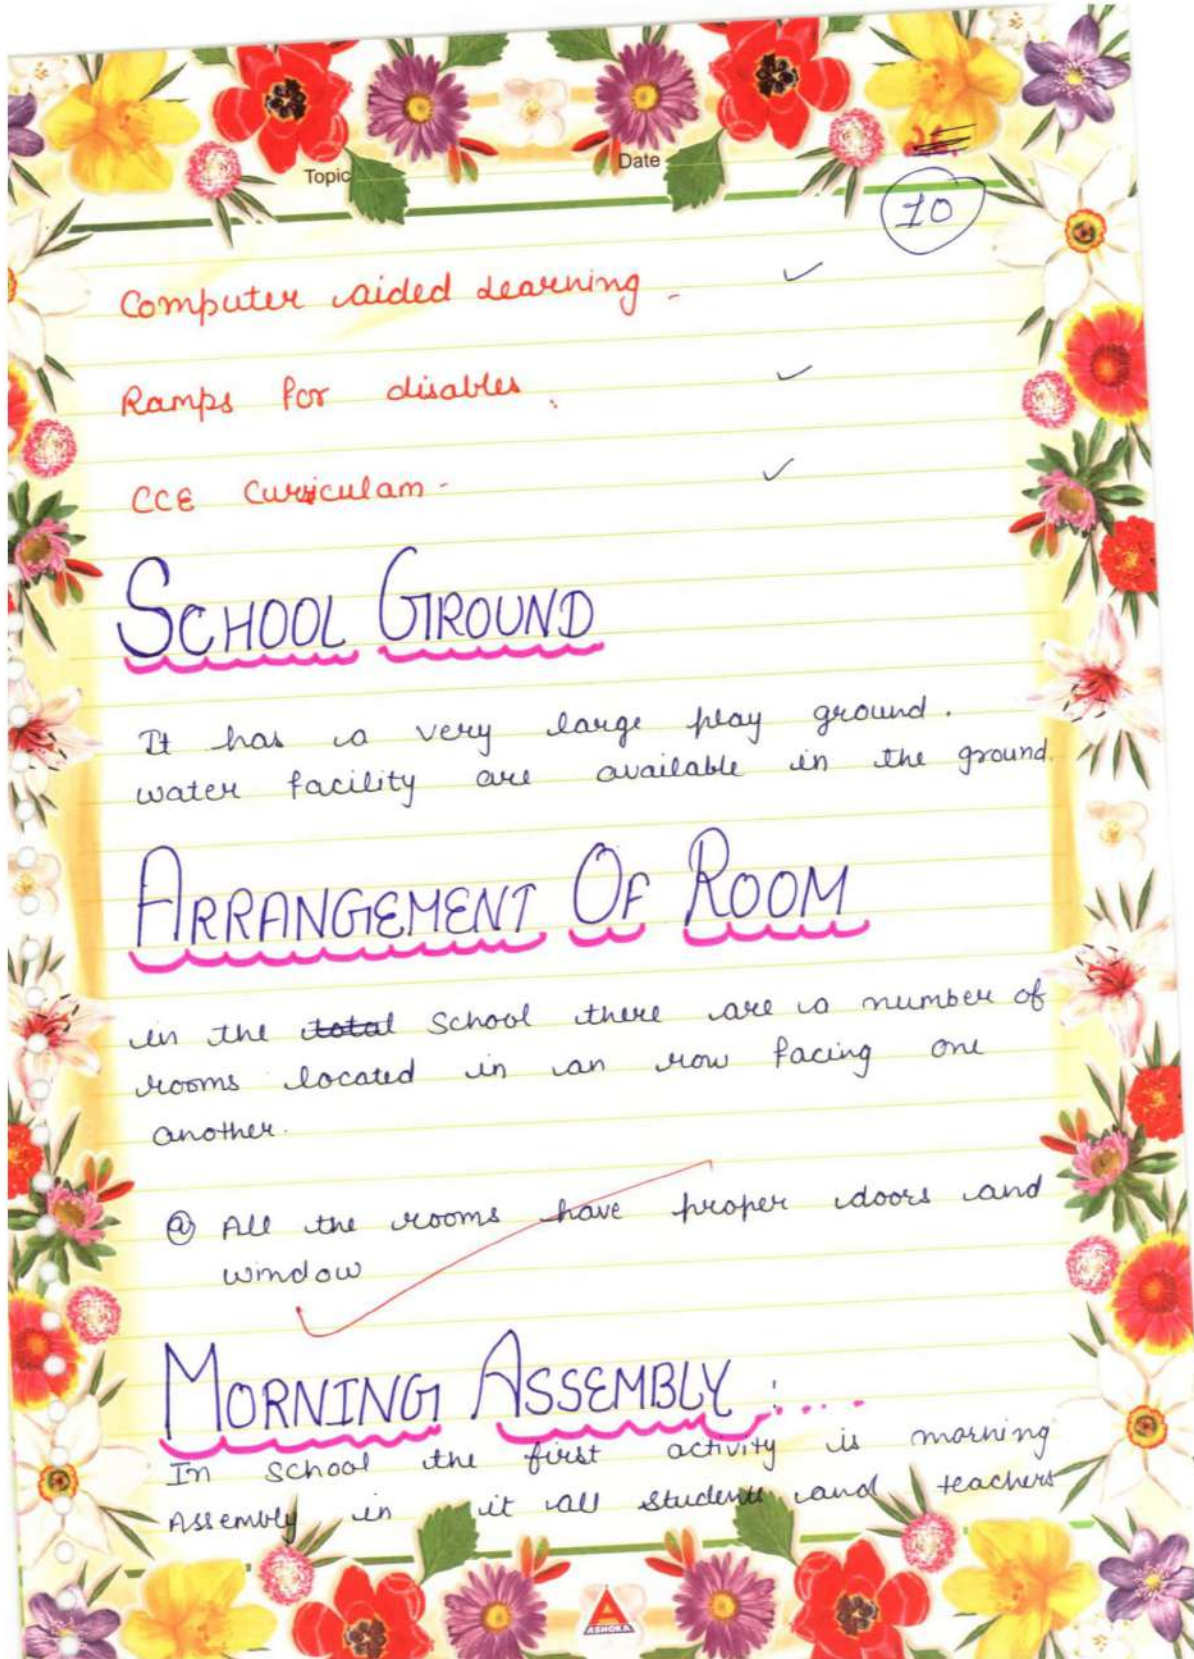 Topic Date
10
Computer aided Learning - ✓
Ramps for disables. ✓
CCE Curriculam - ✓
SCHOOL GROUND
It has a very large play ground.
water facility are available in the ground.
ARRANGEMENT OF ROOM
in the total School there are a number of
rooms located in an row facing one
another.
@ All the rooms have proper doors and
window
MORNING ASSEMBLY :....
In school the first activity is morning
Assembly in it all students and teachers
ASHOKA